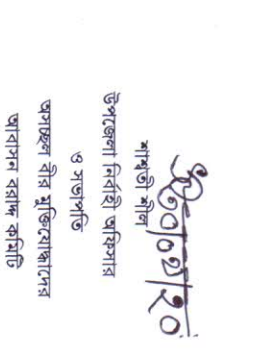 শাশ্বতী শীল
উপজেলা নির্বাহী অফিসার
ও সভাপতি
অসচ্ছল বীর মুক্তিযোদ্ধাদের
আবাসন বরাদ্দ কমিটি